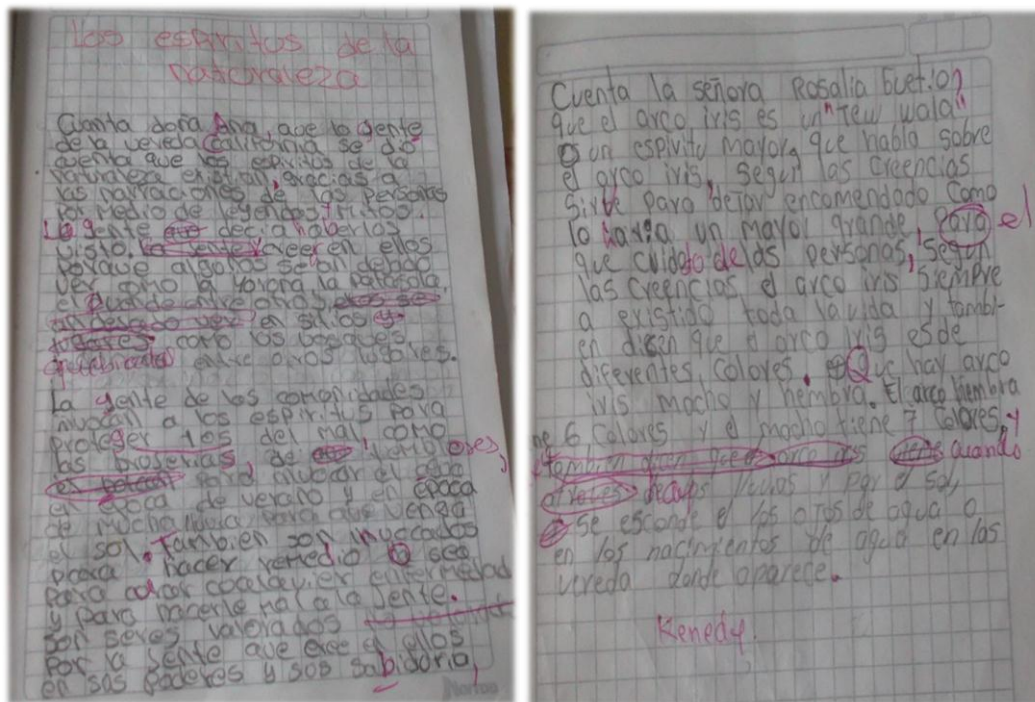 Los espiritos de la
naturaleza
Cuanta doña Ana, que la gente
de la vereda California se dio
cuenta que los espiritos de la
naturaleza existian, gracias a
las narraciones de las personas
por medio de leyendas, ritos.
La gente decia haberlos
visto. la gente creer en ellos
porque algunos se an dejado
ver como la llorona la patasola,
el duende entre otros dos se
an dejado ver en sitios
como los bosques
entre otros lugares.
La gente de las comonidades
invocan a los espiritus para
proteger los del mal, como
las brujerias, de
para invocar el agua
en epoca de verano y en epoca
de mucha lluvia para que venga
el sol. Tambien son invoccados
para hacer remedio O sea
para curar coalquier enfermedad
y para hacerle mal a la gente.
Son seres valorados
por la gente que cree en ellos
en sos poderes y sos sabidoria,
Norma
Cuenta la señora Rosalia
que el arco iris es un "Tew wala"
es un espiritu mayor, que habla sobre
el arco iris, segun las creencias
Sirve para dejar encomendado como
lo haria un mayor grande, para el
que cuidado de las personas, segun
las creencias el arco iris siempre
a existido toda la vida y tambi-
en dicen que el arco iris es de
diferentes colores. Que hay arco
iris macho y hembra. El arco hembra
ne 6 colores y el macho tiene 7 colores, y
tambien arco iris quando
y por el sol,
se esconde el los ojos de agua o
en los nacimientos de agua en las
vereda donde aparece.
Kenedy.